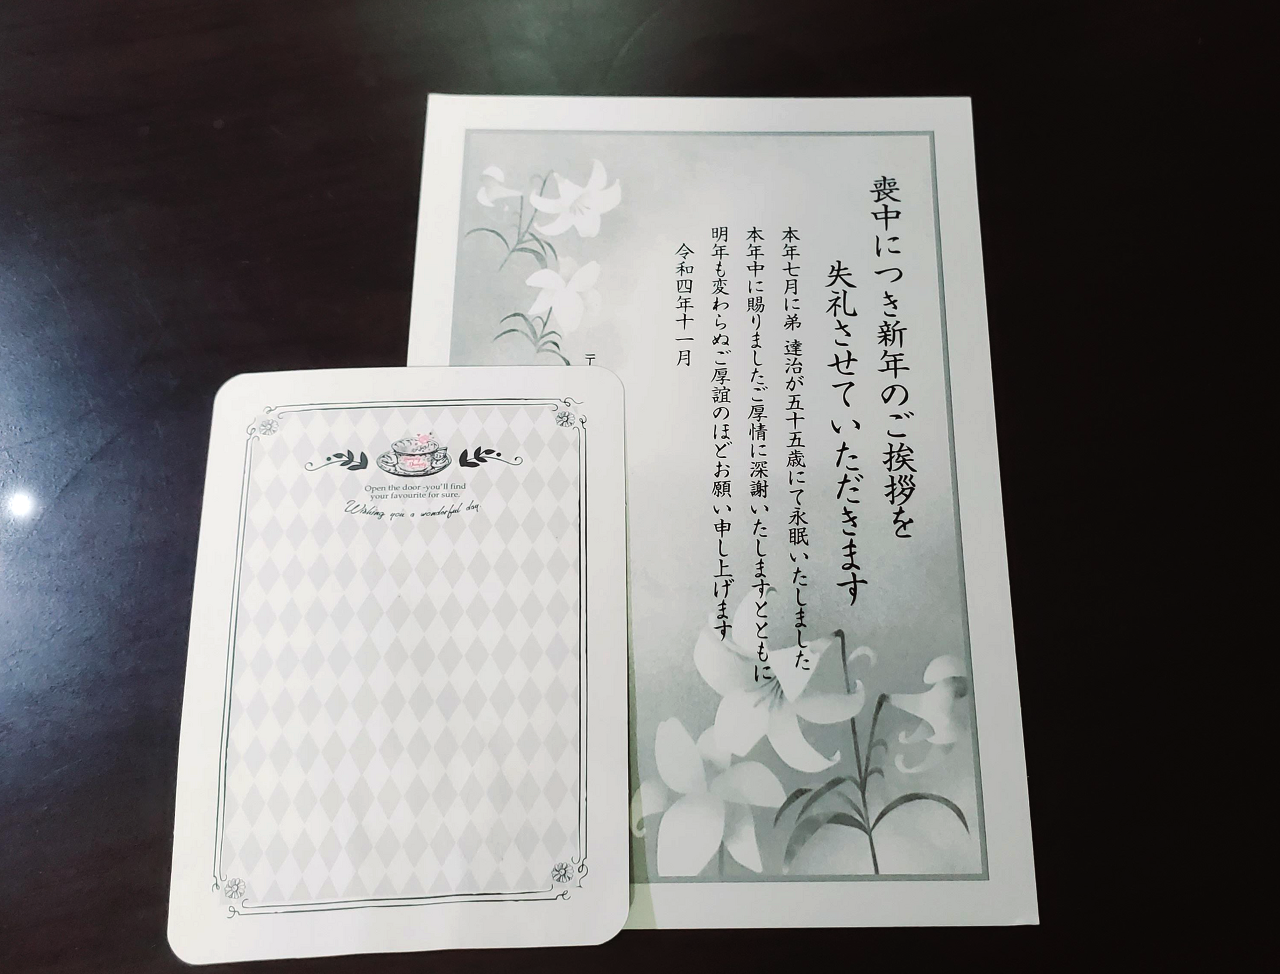 喪中につき新年のご挨拶を
失礼させていただきます
本年七月に弟 達治が五十五歳にて永眠いたしました
本年中に賜りましたご厚情に深謝いたしますとともに
明年も変わらぬご厚誼のほどお願い申し上げます
令和四年十一月
〒
Open the door -you'll find
your favourite for sure.
Wishing you a wonderful day